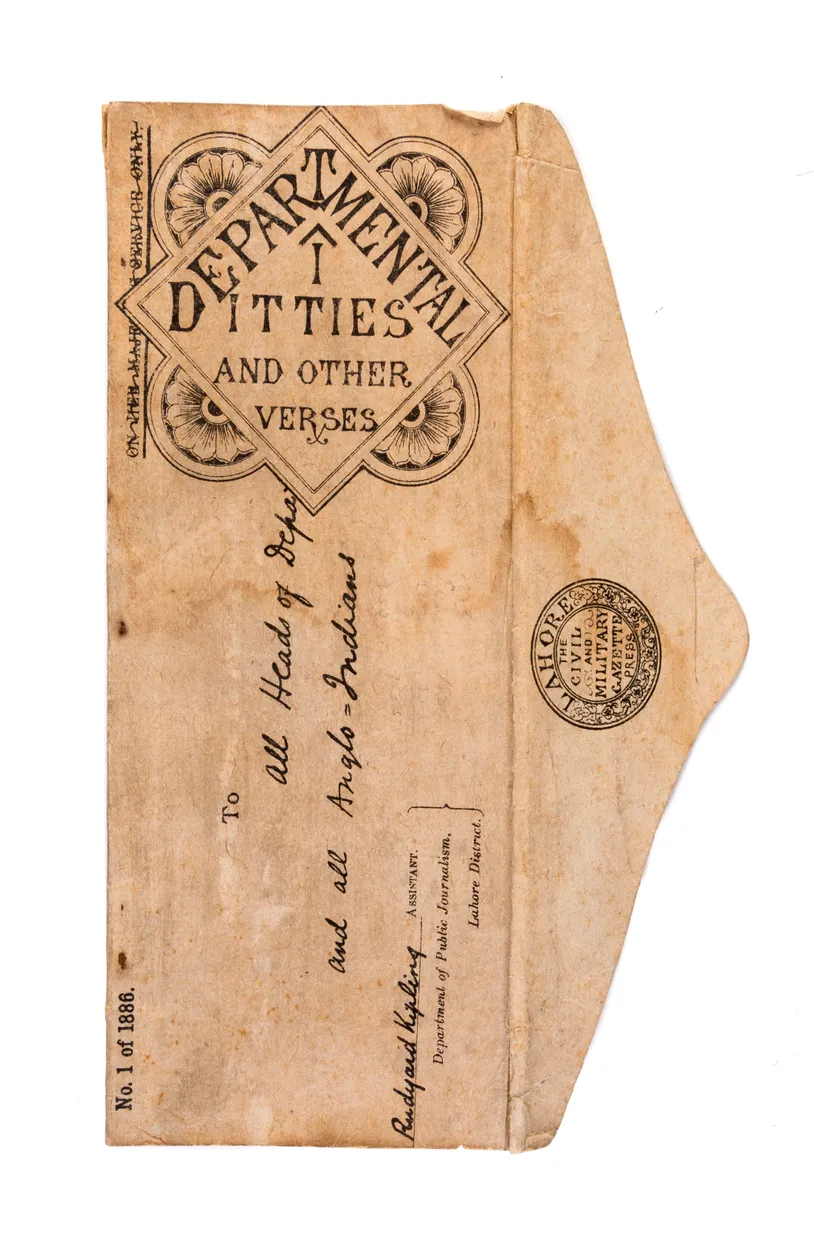 ON HER MAJESTY'S SERVICE ONLY
DEPARTMENTAL
DITTIES
AND OTHER
VERSES
No. 1 of 1886.
To
All Heads of Depa
and all Anglo=Indians
Rudyard Kipling ASSISTANT.
Department of Public Journalism,
Lahore District.
LAHORE
THE
CIVIL
AND
MILITARY
GAZETTE
PRESS